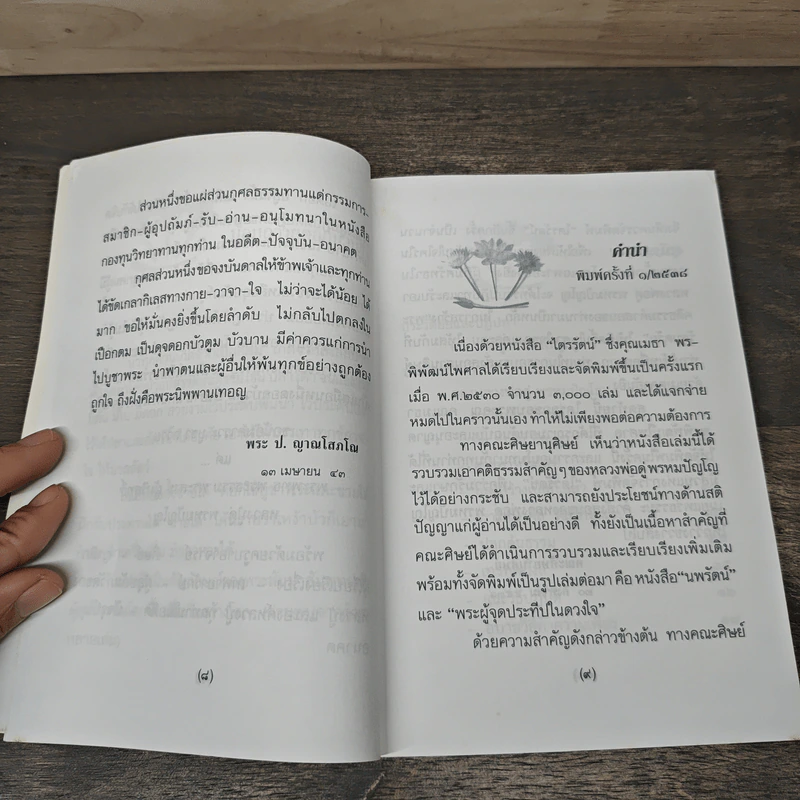 ส่วนหนึ่งขอแผ่ส่วนกุศลธรรมทานแด่กรรมการ-
สมาชิก-ผู้อุปถัมภ์-รับ-อ่าน-อนุโมทนาในหนังสือ
กองทุนวิทยาทานทุกท่าน ในอดีต-ปัจจุบัน-อนาคต
กุศลส่วนหนึ่งขอจงบันดาลให้ข้าพเจ้าและทุกท่าน
ได้ขัดเกลากิเลสทางกาย-วาจา-ใจ ไม่ว่าจะได้น้อย ได้
มาก ขอให้มั่นคงยิ่งขึ้นโดยลำดับ ไม่กลับไปตกลงใน
เปือกตม เป็นดุจดอกบัวตูม บัวบาน มีค่าควรแก่การนำ
ไปบูชาพระ นำพาตนและผู้อื่นให้พ้นทุกข์อย่างถูกต้อง
ถูกใจ ถึงฝั่งคือพระนิพพานเทอญ
พระ ป. ญาณโสภโณ
๑๓ เมษายน ๔๓
(๘)
คำนำ
พิมพ์ครั้งที่ ๑/๒๕๓๘
เนื่องด้วยหนังสือ “ไตรรัตน์” ซึ่งคุณเมธา พร-
พิพัฒน์ไพศาลได้เรียบเรียงและจัดพิมพ์ขึ้นเป็นครั้งแรก
เมื่อ พ.ศ.๒๕๓๐ จำนวน ๓,๐๐๐ เล่ม และได้แจกจ่าย
หมดไปในคราวนั้นเอง ทำให้ไม่เพียงพอต่อความต้องการ
ทางคณะศิษยานุศิษย์ เห็นว่าหนังสือเล่มนี้ได้
รวบรวมเอาคติธรรมสำคัญๆ ของหลวงพ่อดู่ พรหมปัญโญ
ไว้ได้อย่างกระชับ และสามารถยังประโยชน์ทางด้านสติ
ปัญญาแก่ผู้อ่านได้เป็นอย่างดี ทั้งยังเป็นเนื้อหาสำคัญที่
คณะศิษย์ได้ดำเนินการรวบรวมและเรียบเรียงเพิ่มเติม
พร้อมทั้งจัดพิมพ์เป็นรูปเล่มต่อมา คือ หนังสือ “นพรัตน์”
และ “พระผู้จุดประทีปในดวงใจ”
ด้วยความสำคัญดังกล่าวข้างต้น ทางคณะศิษย์
(๙)